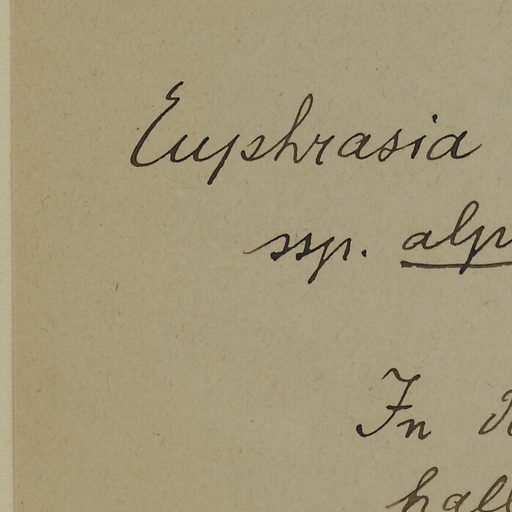 Euphrasia
ssp. alp
In
hall